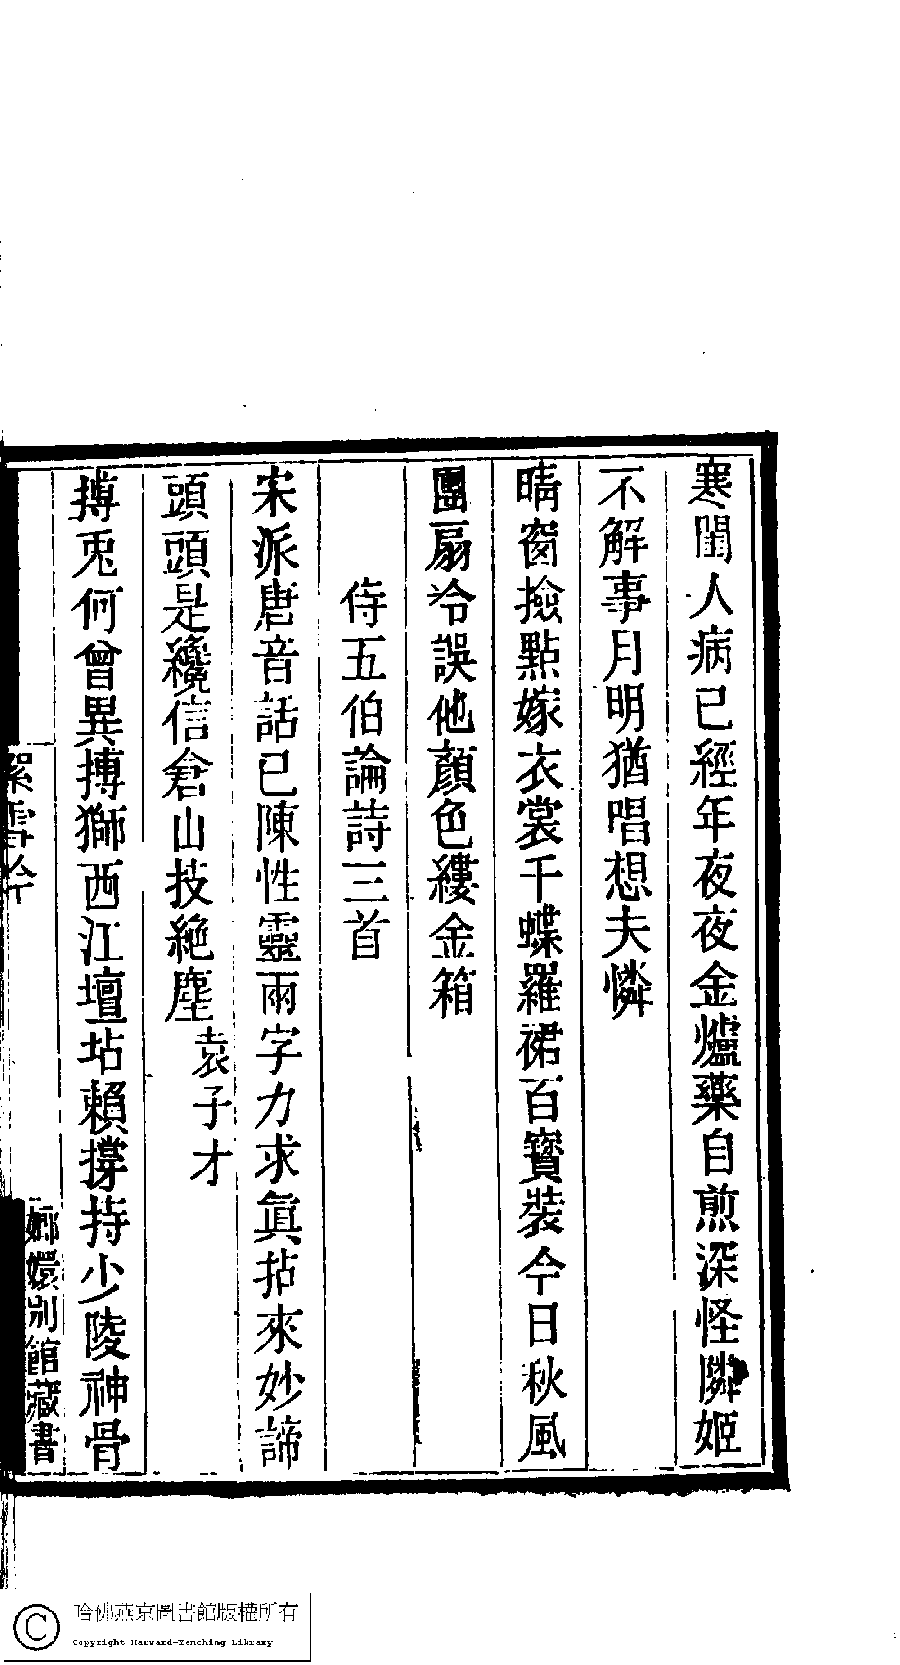 寒閨人病已經年夜夜金爐藥自煎深怪隣姬
不解事月明猶唱想夫憐
晴窗撿點嫁衣裳千蝶羅裙百寳裝今日秋風
團扇冷誤他顏色縷金箱
侍五伯論詩三首
宋派唐音話已陳性靈兩字力求眞拈來妙諦
頭頭是纔信倉山技絶塵袁子才
搏兎何曾異搏獅西江壇坫賴撐持少陵神骨
絮雪吟
嫏嬛別館藏書
哈佛燕京圖書館版權所有
Copyright Harvard-Yenching Library